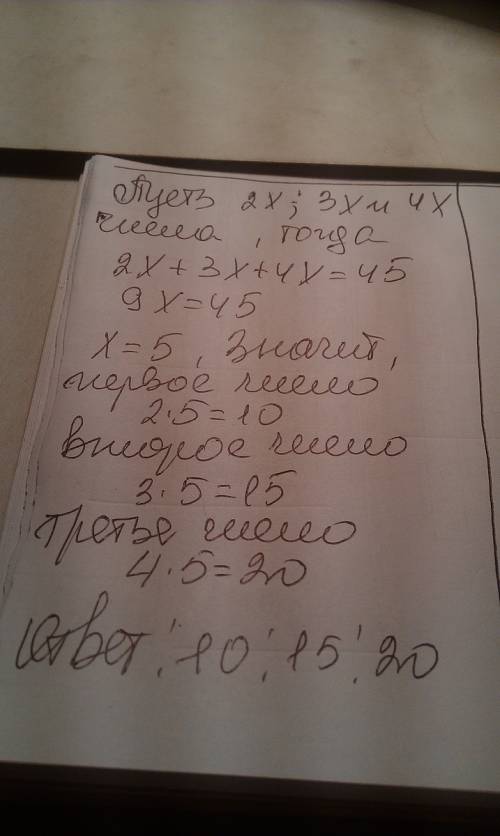 Пусть 2x; 3x и 4x
числа, тогда
2x+3x+4x=45
9x=45
x=5, значит,
первое число
2·5=10
второе число
3·5=15
третье число
4·5=20
Ответ: 10; 15; 20